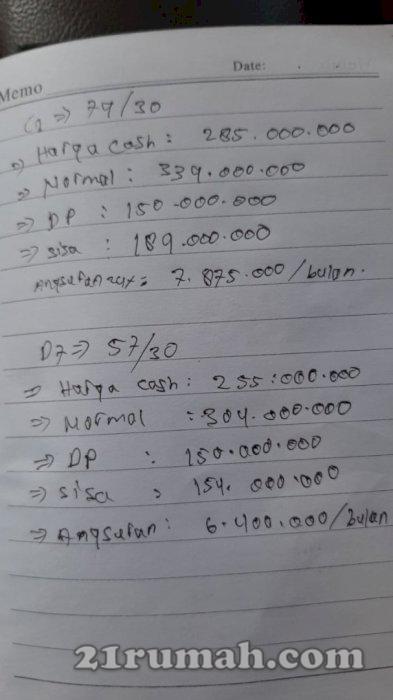 Memo
Date:
C1 => 79/30
=> Harga cash : 285.000.000
=> Normal : 339.000.000
=> DP : 150.000.000
=> sisa : 189.000.000
Angsuran 24x = 7.875.000/bulan.
D7 => 57/30
=> Harga cash : 255.000.000
=> Normal : 304.000.000
=> DP : 150.000.000
=> sisa : 154.000.000
=> Angsuran : 6.400.000/bulan
21rumah.com